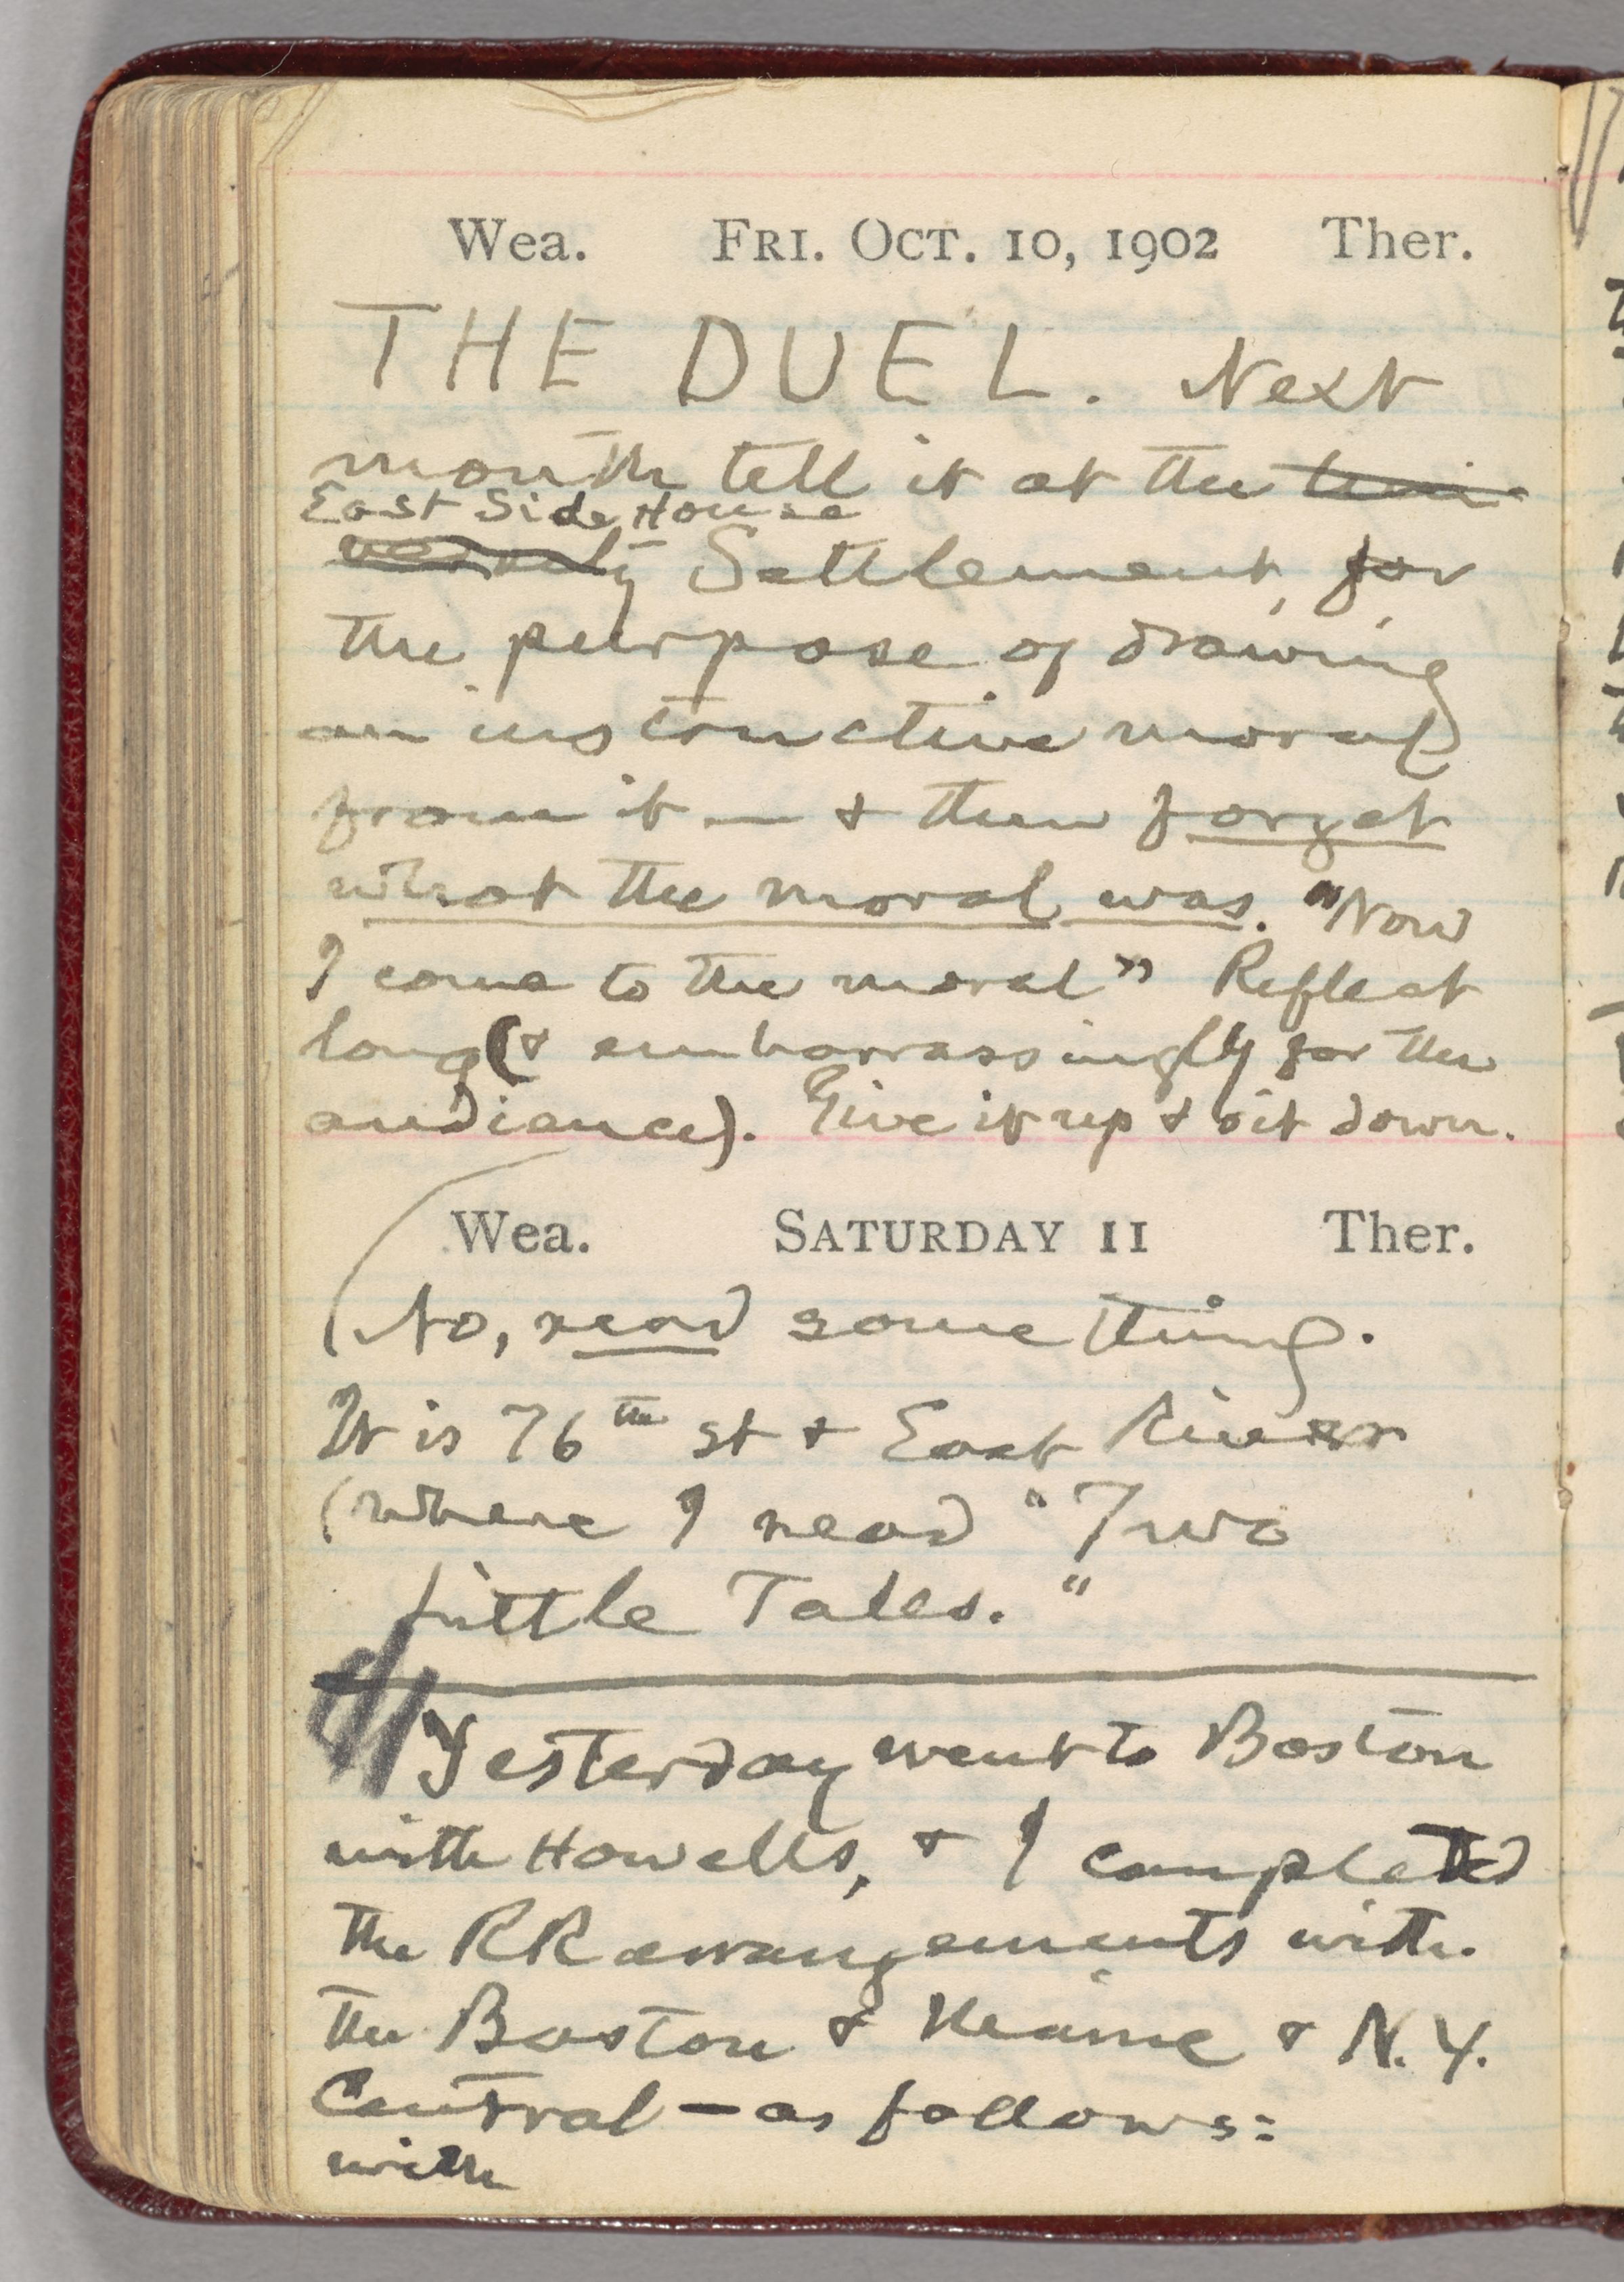 Wea. FRI. OCT. 10, 1902 Ther.
THE DUEL. Next
month tell it at the Uni-
East Side House
versity Settlement, for
the purpose of drawing
an instructive moral
from it — & then forget
what the moral was. "Now
I come to the moral" Reflect
long (& embarrassingly for the
audience). Give it up & sit down.
Wea. SATURDAY 11 Ther.
(No, read something.
It is 76th st & East River
(where I read "Two
Little Tales."
Yesterday went to Boston
with Howells, & I completed
the RR arrangements with
the Boston & Maine & N.Y.
Central — as follows:
with